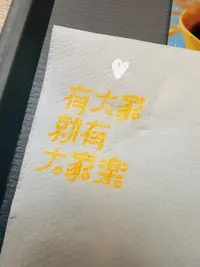 有大家
就有
大家樂